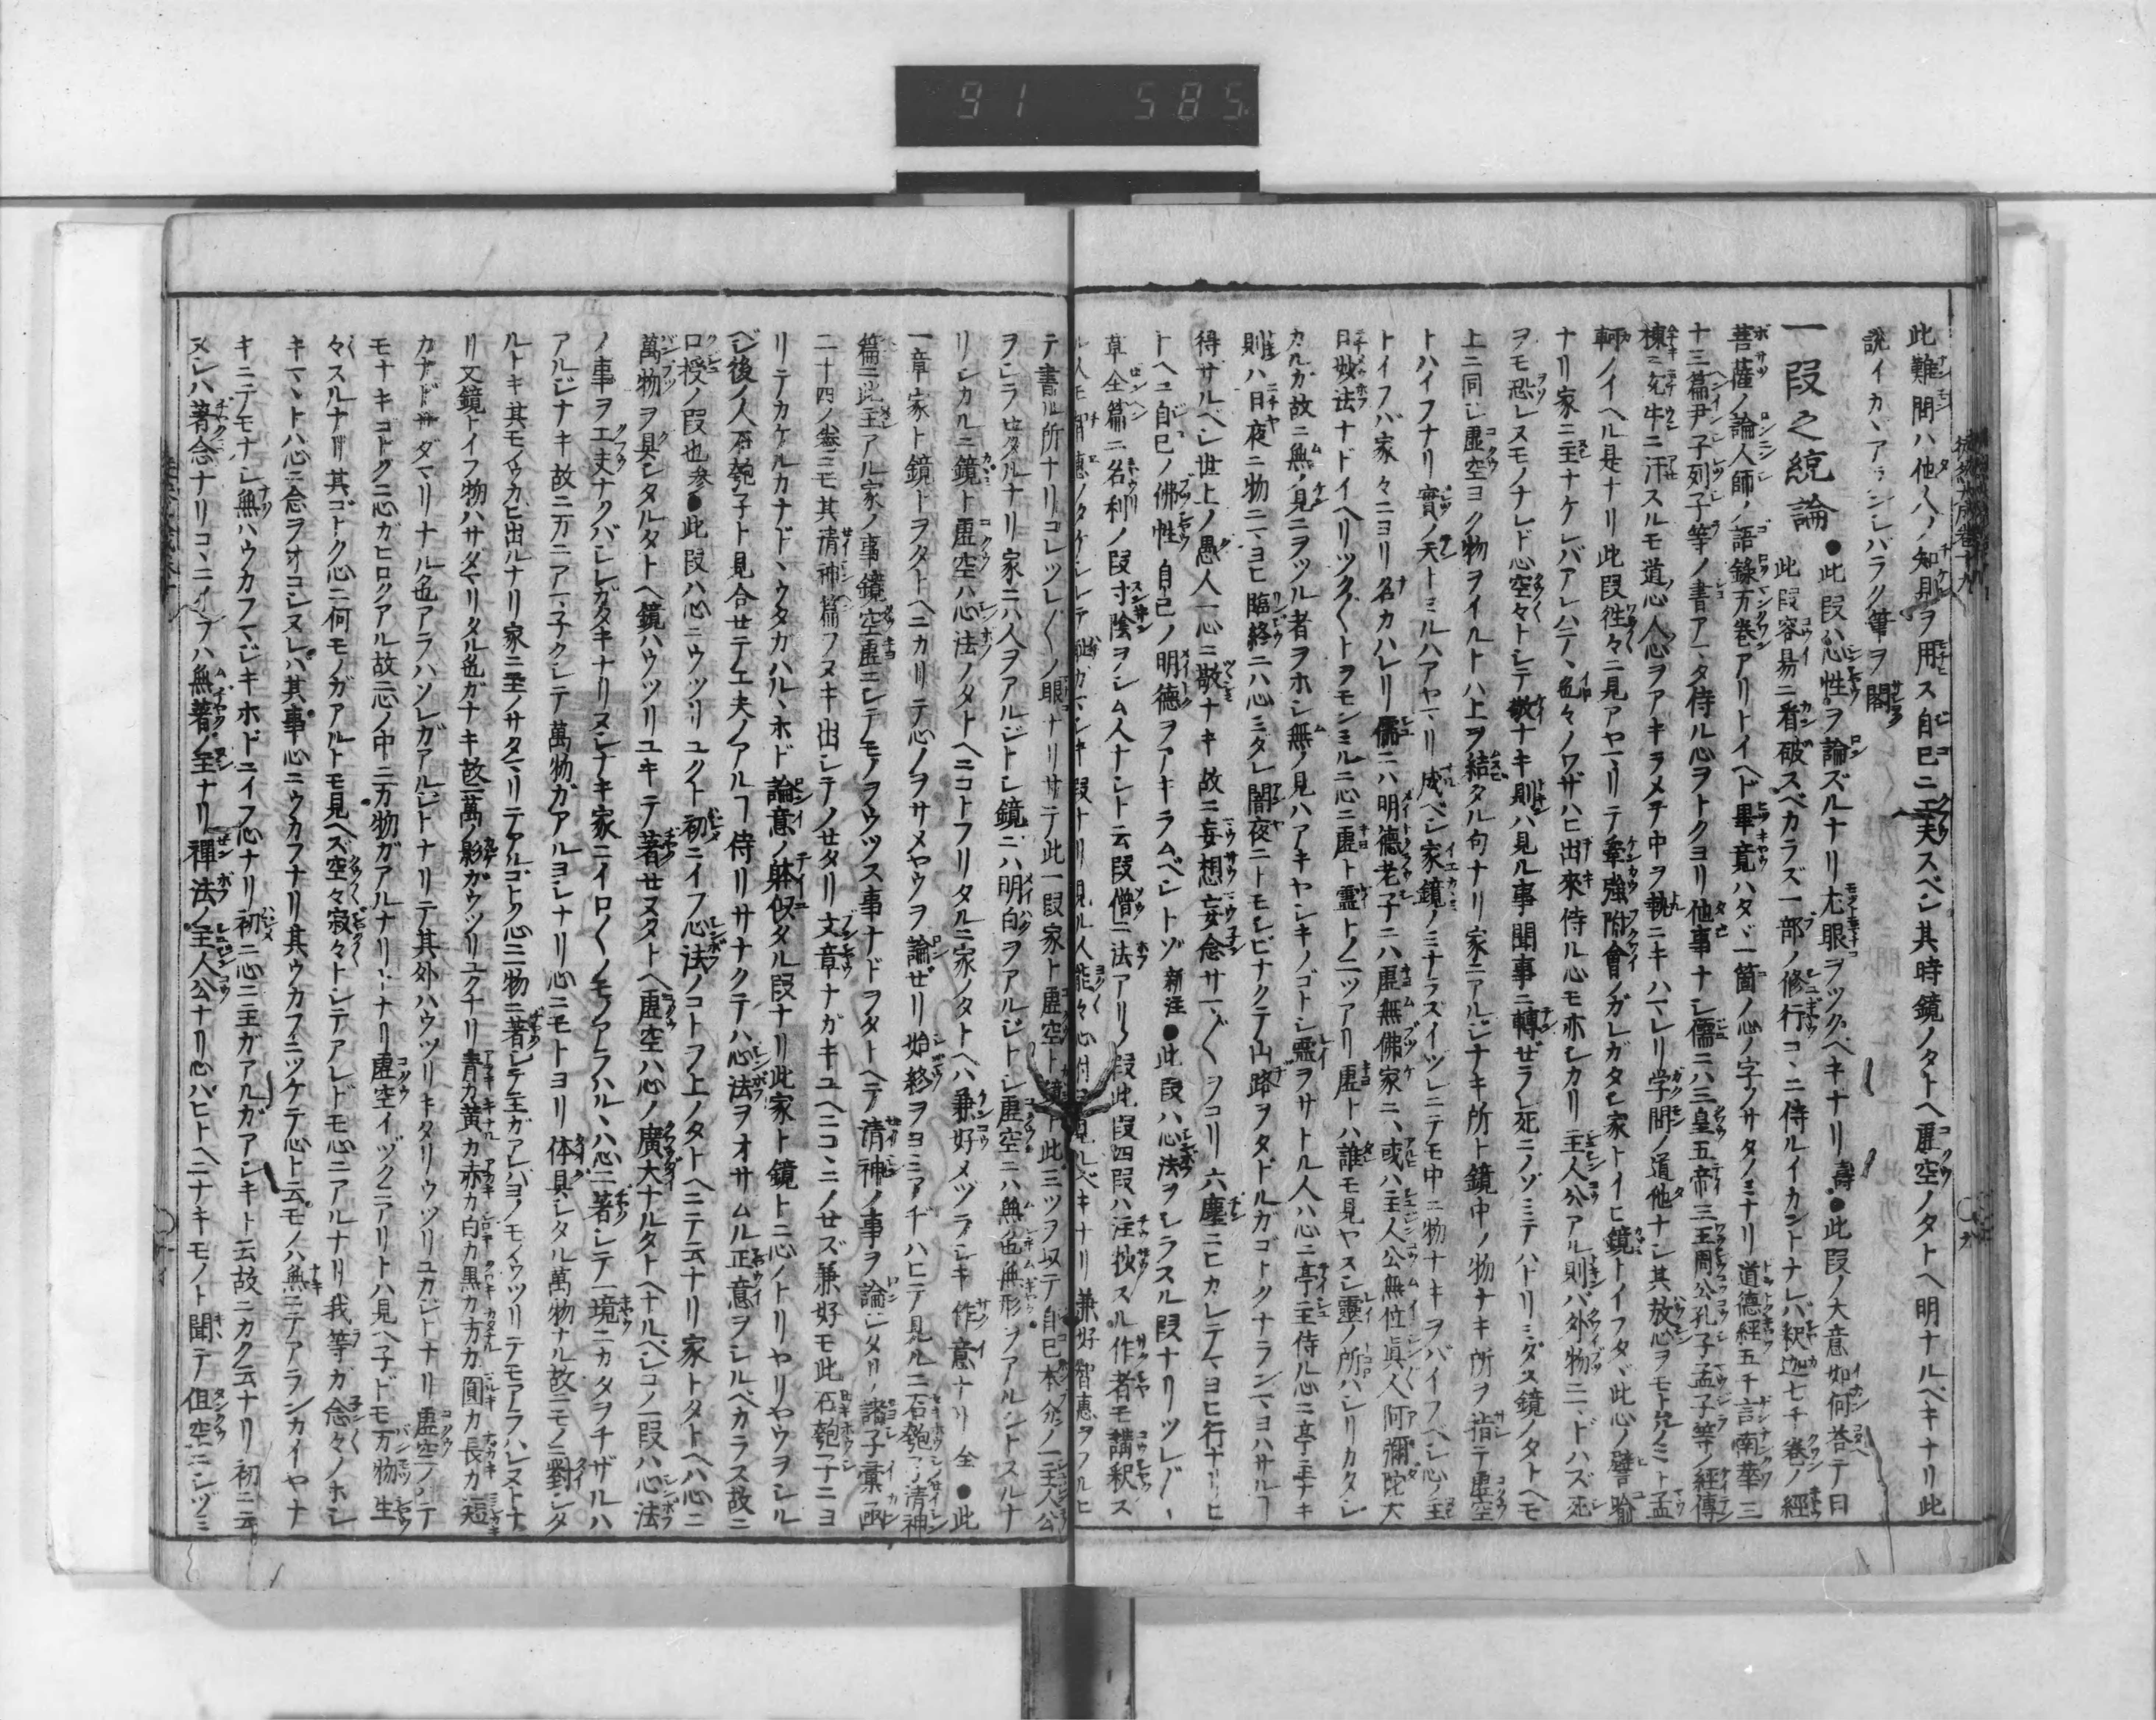 91 585
此難問ハ他人ノ知見ヲ用ス自己ニ工夫スベシ其時鏡ノタトヘ虚空ノタトヘ明ナルベキナリ此
說イカヽアランシバラク筆ヲ閣
一段之統論 ●此段ハ心性ヲ論ズルナリ尤眼ヲツクベキナリ 壽●此段ノ大意如何答テ曰
此段容易ニ看破スベカラズ一部ノ修行コヽニ侍ルイカントナレバ釈迦七千巻ノ經
菩薩ノ論人師ノ語錄万巻アリトイヘド畢竟ハタヾ一箇ノ心ノ字ノサタノミナリ道德經五千言南華三
十三篇尹子列子等ノ書アマタ侍ル心ヲトクヨリ他事ナシ儒ニハ三皇五帝三王周公孔子孟子等ノ經傳
棟ニ充牛ニ汗スルモ道心人心ヲアキラメテ中ヲ執ニキハマレリ学問ノ道他ナシ其放心ヲモトムルノミト孟
軻ノイヘル是ナリ此段徃々ニ見アヤマリテ牽強附會ノガレガタシ家トイヒ鏡トイフタヾ此心ノ譬喩
ナリ家ニ主ナケレバアレハテヽ色々ノワザハヒ出來侍ル心モ亦シカリ主人公アル則バ外物ニマドハズ死
ヲモ恐レヌモノナレド心空々トシテ敬ナキ則ハ見ル事聞事ニ轉ゼラレ死ニノゾミテハトリミダス鏡ノタトヘモ
上ニ同シ虚空ヨク物ヲイルトハ上ヲ結タル句ナリ家ニアルジナキ所ト鏡中ノ物ナキ所ヲ指テ虚空
トハイフナリ實ノ天トミルハアヤマリ成ベシ家鏡ノミナラズイヅレニテモ中ニ物ナキヲバイフベシ心ノ主
トイフバ家々ニヨリ名カハレリ儒ニハ明德老子ニハ虚無佛家ニハ或ハ主人公無位眞人阿彌陀大
日妙法ナドイヘリツク〱トヲモンミルニ心ニ虚ト靈トノ二ツアリ虚トハ誰モ見ヤスシ靈ノ所ハシリカタシ
カルガ故ニ無ノ見ニヲツル者ヲホシ無ノ見ハアキヤシキノゴトシ靈ヲサトル人ハ心ニ亭主侍ル心ニ亭主ナキ
則ハ日夜ニ物ニマヨヒ臨終ニハ心ミタレ闇夜ニトモシビナクテ山路ヲタドルガゴトクナランマヨハサルヿ
得サルベシ世上ノ愚人一心ニ敬ナキ故ニ妄想妄念サマ〲ヲコリ六塵ニヒカレテマヨヒ行ナリヒ
トヘニ自己ノ佛性自己ノ明德ヲアキラムベシトゾ 新注●此段ハ心法ヲシラスル段ナリツレ〲
草全篇ニ名利ノ段寸陰ヲシム人ナシト云段僧ニ法アリノ段此段四段ハ注抄スル作者モ講釈ス
テ書ル所ナリコレツレ〱ノ眼ナリサテ此一段家ト虚空ト鏡ト此三ツヲ以テ自己本分ノ一主人公
ヲシラセタルナリ家ニハ人ヲアルジトシ鏡ニハ明白ヲアルジトシ虚空ニハ無色無形ヲアルジトスルナ
リシカルニ鏡ト虚空ハ心法ノタトヘニコトフリタルニ家ノタトヘハ兼好メヅラシキ作意ナリ 全●此
一章家ト鏡トヲタトヘニカリテ心ノヲサメヤウヲ論ゼリ始終ヲヨミアヂハヒテ見ルニ石匏子清神
篇ニ此主アル家ノ事鏡空虚ニシテモノヲウツス事ナドヲタトヘテ清神ノ事ヲ論シタリ諸子彙函
二十四ノ巻ニモ其清神篇ヲヌキ出シテノセタリ文章ナガキユヘニコヽニノセズ兼好モ此石匏子ニヨ
リテカケルカナドヽウタカハルヽホド論意ノ躰似タル段ナリ此家ト鏡トニ心ノトリヤリヤウヲシル
ベシ後ノ人石匏子ト見合セテ工夫ノアルヿ侍リサナクテハ心法ヲオサムル正意ヲシルベカラス故ニ
口授ノ段也 参●此段ハ心ニウツリユクト初ニイフ心法ノコトヲ上ノタトヘニテ云ナリ家トタトヘハ心ニ
萬物ヲ具シタルタトヘ鏡ハウツリユキテ著セヌタトヘ虚空ハ心ノ廣大ナルタトヘナルベシコノ一段ハ心法
ノ事ヲ工夫ナクバシレガタキナリヌシナキ家ニイロ〱ノモノアラハルヽハ心ニ著シテ一境ニカタヲチザルハ
アルジナキ故ニ万ニアマ子クシテ萬物ガアルヨシナリ心ニモトヨリ体具シタル萬物ナル故ニモノニ對シタ
ルトキ其モノウカビ出ルナリ家ニ主ノサタマリテアルゴトク心ニ物ニ著シテ主ガアレバヨノモノウツリテモアラハレヌトナ
リ又鏡トイフ物ハサダマリタル色ガナキ故ニ萬ノ影ガウツリユクナリ青カ黄カ赤カ白カ黒カ方カ圓カ長カ短
カナドサダマリナル色アラバソレガアルジトナリテ其外ハウツリキタリウツリユカジトナリ虚空ノテ
モナキゴトクニ心ガヒロクアル故ニ心ノ中ニ万物ガアルナリトナリ虚空イヅクニアリトハ見ヘ子ドモ万物生
々スルナリ其ゴトク心ニ何モノガアルトモ見ヘズ空々寂々トシテアレドモ心ニアルナリ我等カ念々ノホシ
キマヽトハ心ニ念ヲオコシヌレバ其事心ニウカフナリ其ウカフニツケテ心ト云モノハ無ニテアランカイヤナ
キニテモナシ無ハウカフマジキホドニイフ心ナリ初ニ心ニ主ガアルガアシキト云故ニカク云ナリ初ニ云
ヌシハ著念ナリコヽニイフハ無著ノ主ナリ禪法ノ主人公ナリ心ハヒトヘニナキモノト聞テ但空ニシヅミ